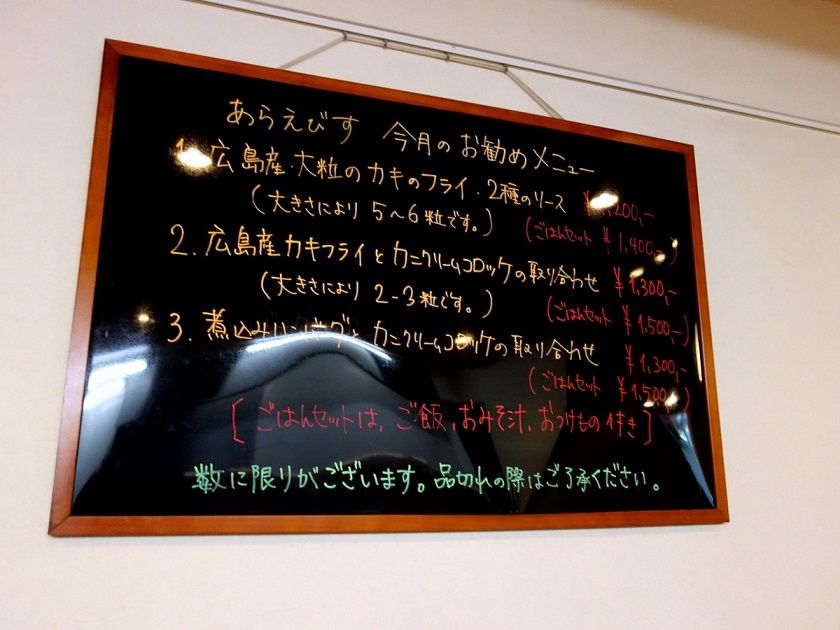 あらえびす 今月のお勧めメニュー
1. 広島産・大粒のカキのフライ・2種のソース ¥1,200,-
(大きさにより 5〜6粒です。) (ごはんセット ¥1,400,-)
2. 広島産カキフライとカニクリームコロッケの取り合わせ ¥1,300,-
(大きさにより 2-3粒です。) (ごはんセット ¥1,500,-)
3. 煮込みハンバーグとカニクリームコロッケの取り合わせ ¥1,300,-
(ごはんセット ¥1,500,-)
[ごはんセットは、ご飯、おみそ汁、おつけもの付き]
数に限りがございます。品切れの際はご了承ください。